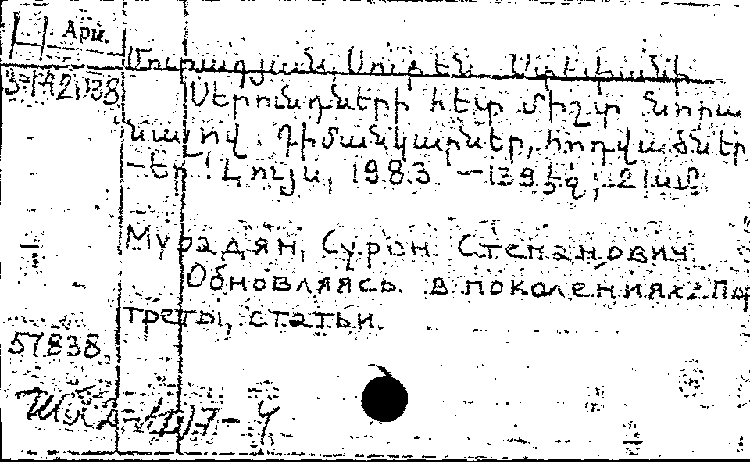 Арм.
Մուրադյան Սուրեն Ստեփանի
Սերունդների հետ միշտ նորա
նալով. Դիմանկարներ, հոդվածներ
-Եր.: Լույս, 1983 - 139 էջ; 21սմ
Мурадян, Сурен Степанович
Обновляясь в поколениях: Пор
треты, статьи.
57838